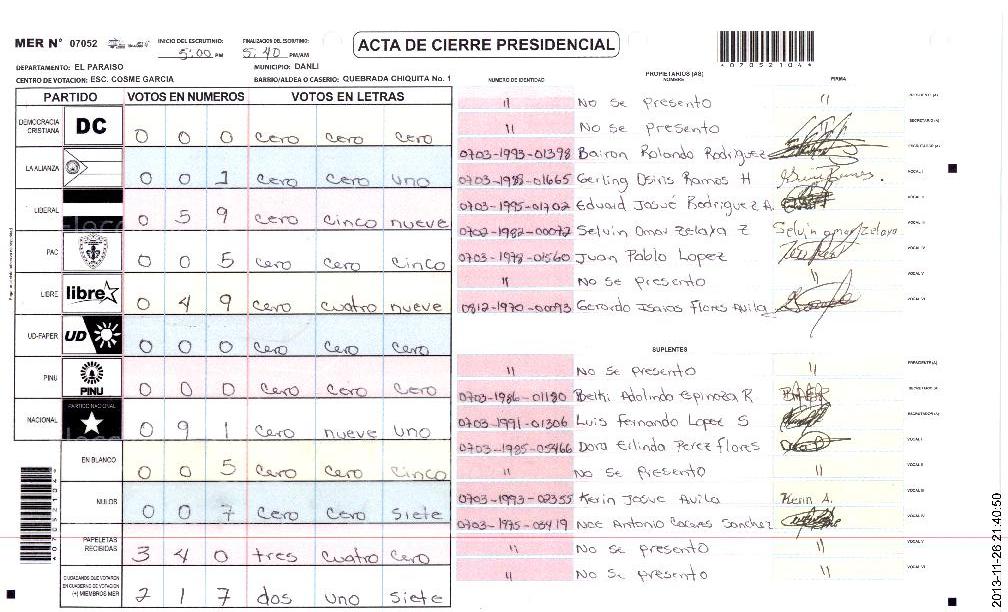 MER N° 07052
INICIO DEL ESCRUTINIO: 5:00 PM
FINALIZACION DEL ESCRUTINIO: 5:40 PM/AM
ACTA DE CIERRE PRESIDENCIAL
4070521044
DEPARTAMENTO: EL PARAISO MUNICIPIO: DANLI
CENTRO DE VOTACION: ESC. COSME GARCIA BARRIO/ALDEA O CASERIO: QUEBRADA CHIQUITA No. 1
PARTIDO VOTOS EN NUMEROS VOTOS EN LETRAS
DEMOCRACIA CRISTIANA DC 0 0 0 cero cero cero
LA ALIANZA 0 0 1 cero cero uno
LIBERAL 0 5 9 cero cinco nueve
PAC 0 0 5 cero cero cinco
LIBRE libre 0 4 9 cero cuatro nueve
UD-FAPER UD 0 0 0 cero cero cero
PINU PINU 0 0 0 cero cero cero
NACIONAL PARTIDO NACIONAL 0 9 1 cero nueve uno
EN BLANCO 0 0 5 cero cero cinco
NULOS 0 0 7 cero cero siete
PAPELETAS RECIBIDAS 3 4 0 tres cuatro cero
CIUDADANOS QUE VOTARON EN CUADERNO DE VOTACION (+) MIEMBROS MER 2 1 7 dos uno siete
NUMERO DE IDENTIDAD PROPIETARIOS (AS) NOMBRE FIRMA
" No se presento " PRESIDENTE (A)
" No se presento SECRETARIO (A)
0703-1993-01398 Bairon Rolando Rodriguez ESCRUTADOR (A)
0703-1988-01665 Gerling Osiris Ramos H VOCAL I
0703-1995-01702 Eduard Josué Rodriguez A. VOCAL II
0702-1982-00072 Selvin Omar Zelaya Z Selvin omar Zelaya VOCAL III
0703-1978-01560 Juan Pablo Lopez VOCAL IV
" No se presento " VOCAL V
0812-1970-00093 Gerardo Isaias Flores Avila VOCAL VI
SUPLENTES
" No se presento " PRESIDENTE (A)
0703-1986-01180 Belki Adolinda Espinoza R. SECRETARIO (A)
0703-1991-01306 Luis Fernando Lopez S ESCRUTADOR (A)
0703-1985-05466 Dora Erlinda Perez Flores VOCAL I
" No se presento " VOCAL II
0703-1993-02355 Kerin Josue Avila Kerin A. VOCAL III
0703-1975-03419 Noe Antonio Caceres Sanchez VOCAL IV
" No se presento " VOCAL V
" No se presento " VOCAL VI
4070521044
2013-11-26 21:40:50